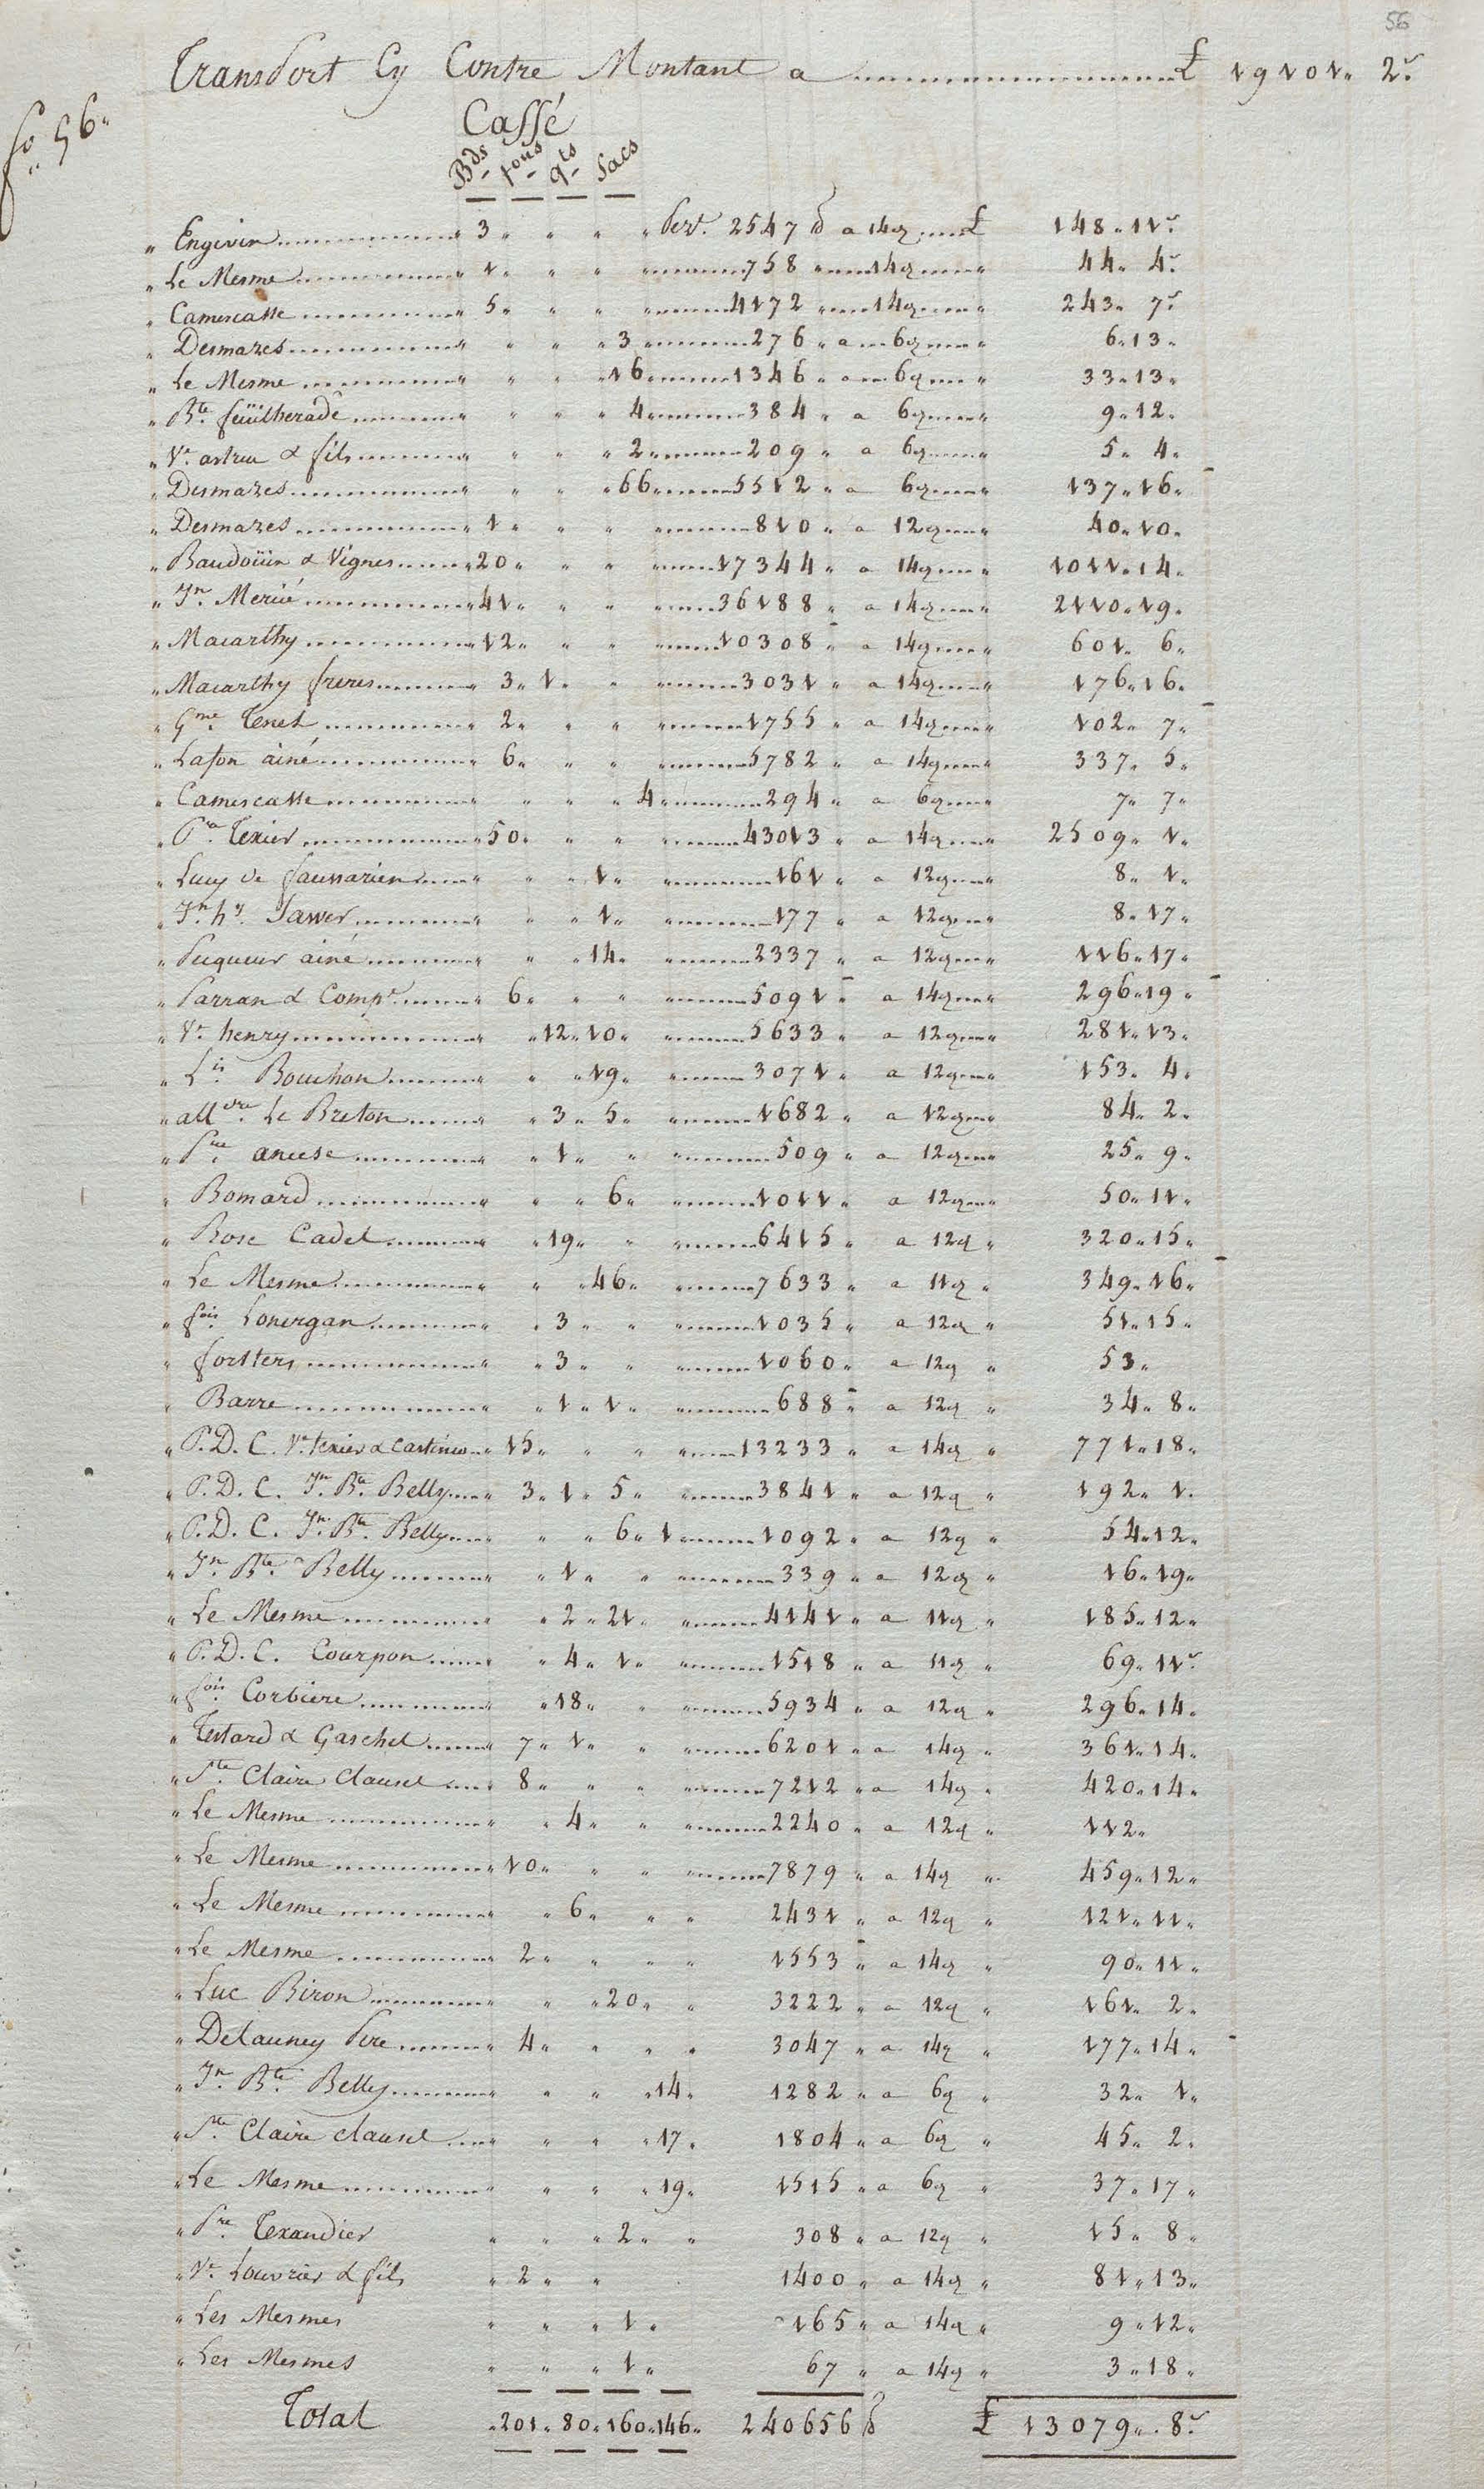 56
Transport Cy Contre Montant a £ 19101. 2s
fo. 56.
Caffé
Bds fons qts Sacs
" Engevin " 3 " " " " Pert. 2547 lb a 14 d £ 148. 11s
" Le Mesme " 1 " " " 758 " 14 d " 44. 4s
" Camescasse " 5 " " " 4172 " 14 d " 243. 7s
" Desmazes " " " " 3 276 " a 6 d " 6. 13.
" Le Mesme " " " " 16 1346 " a 6 d " 33. 13.
" Bte. feüilherade " " " " 4 384 " a 6 d " 9. 12.
" Ve. astruc & fils " " " " 2 209 " a 6 d " 5. 4.
" Desmazes " " " " 66 5512 " a 6 d " 137. 16.
" Desmazes " 1 " " " 810 " a 12 d " 40. 10.
" Baudoüin & Vignes " 20 " " " 17344 " a 14 d " 1011. 14.
" Jn. Merié " 41 " " " 36188 " a 14 d " 2110. 19.
" Macarthy " 12 " " " 10308 " a 14 d " 601. 6.
" Macarthy freres " 3 " 1 " " 3031 " a 14 d " 176. 16.
" Gme. Tenet " 2 " " " 1755 " a 14 d " 102. 7.
" Lafon ainé " 6 " " " 5782 " a 14 d " 337. 5.
" Camescasse " " " " 4 294 " a 6 d " 7. 7.
" Texier " 50 " " " 43013 " a 14 d " 2509. 1.
" Lucy de faussarieu " " " 1 " 161 " a 12 d " 8. 1.
" Jn. hy. " " " 1 " 177 " a 12 d " 8. 17.
" Peuqueur ainé " " " 14 " 2337 " a 12 d " 116. 17.
" Parran & Compe. " 6 " " " 5091 " a 14 d " 296. 19.
" Ve. henry " " 12 " 10 " 5633 " a 12 d " 281. 13.
" Lis. Bouchon " " " 19 " 3071 " a 12 d " 153. 4.
" alldre. Le Breton " " 3 " 5 " 1682 " a 12 d " 84. 2.
" " " 1 " " 509 " a 12 d " 25. 9.
" Bomard " " " 6 " 1011 " a 12 d " 50. 11.
" Rose Cadet " " 19 " " 6415 " a 12 d " 320. 15.
" Le Mesme " " " 46 " 7633 " a 11 d " 349. 16.
" fois. Lonergan " " 3 " " 1035 " a 12 d " 51. 15.
" forsters " " 3 " " 1060 " a 12 d " 53.
" Barre " " 1 " 1 " 688 " a 12 d " 34. 8.
" P. D. C. Ve. texier & " 15 " " " 13233 " a 14 d " 771. 18.
" P. D. C. Jn. Bte. Belly " 3 " 1 " 5 " 3841 " a 12 d " 192. 1.
" P. D. C. Jn. Bte. Belly " " " 6 " 1 1092 " a 12 d " 54. 12.
" Jn. Bte. Belly " " 1 " " 339 " a 12 d " 16. 19.
" Le Mesme " " 2 " 21 " 4141 " a 11 d " 185. 12.
" P. D. C. Courpon " " 4 " 1 " 1518 " a 11 d " 69. 11s
" fois. Corbiere " " 18 " " 5934 " a 12 d " 296. 14.
" Testard & Gaschet " 7 " 1 " " 6201 " a 14 d " 361. 14.
" Ste. Claire Clausel " 8 " " " 7212 " a 14 d " 420. 14.
" Le Mesme " " 4 " " 2240 " a 12 d " 112.
" Le Mesme " 10 " " " 7879 " a 14 d " 459. 12.
" Le Mesme " " 6 " " " 2431 " a 12 d " 121. 11.
" Le Mesme " 2 " " " " 1553 " a 14 d " 90. 11.
" Luc Biron " " " 20 " " 3222 " a 12 d " 161. 2.
" Delauney Pere " 4 " " " " 3047 " a 14 d " 177. 14.
" Jn. Bte. Belly " " " " 14 " 1282 " a 6 d " 32. 1.
" Ste. Claire clausel " " " " 17 " 1804 " a 6 d " 45. 2.
" Le Mesme " " " " 19 " 1515 " a 6 d " 37. 17.
" Pre. Texandier " " " 2 " " 308 " a 12 d " 15. 8.
" Ve. Louvrier & fils " 2 " " 1400 " a 14 d " 81. 13.
" Les Mesmes " " " 1 " 165 " a 14 d " 9. 12.
" Les Mesmes " " " 1 " 67 " a 14 d " 3. 18.
Total " 201 " 80 " 160 " 146 " 240656 lb £ 13079. 8s